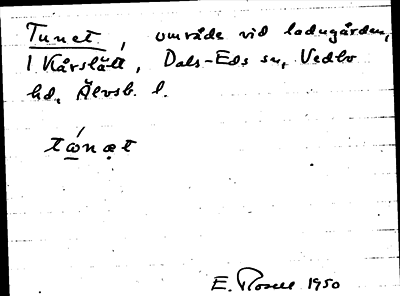 Tunet, område vid ladugården,
1 Kårslätt, Dals-Eds sn, Vedbo
hd, Älvsb. l.
tώnœt
E. Rosell 1950